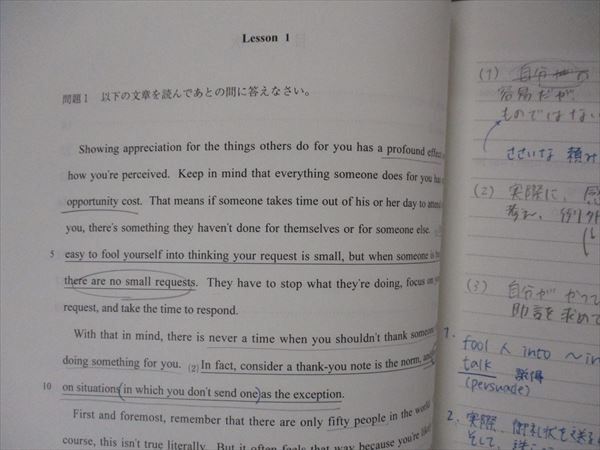 Lesson 1
問題1 以下の文章を読んであとの問に答えなさい。
Showing appreciation for the things others do for you has a profound effect
how you're perceived. Keep in mind that everything someone does for you has
opportunity cost. That means if someone takes time out of his or her day to attend
you, there's something they haven't done for themselves or for someone else.
5 easy to fool yourself into thinking your request is small, but when someone is
there are no small requests. They have to stop what they're doing, focus on
request, and take the time to respond.
With that in mind, there is never a time when you shouldn't thank someone
doing something for you. (2) In fact, consider a thank-you note is the norm,
10 on situations (in which you don't send one) as the exception.
First and foremost, remember that there are only fifty people in the world
course, this isn't true literally. But it often feels that way because you're
(1) 自分
容易だが、
ものではない
ささいな 頼み
(2) 実際に、
考え、例外
(3) 自分が やって
助言を求めて
1.
fool 人 into ~in
talk 説得
(persuade)
2. 実際、御礼状を送る
そして、